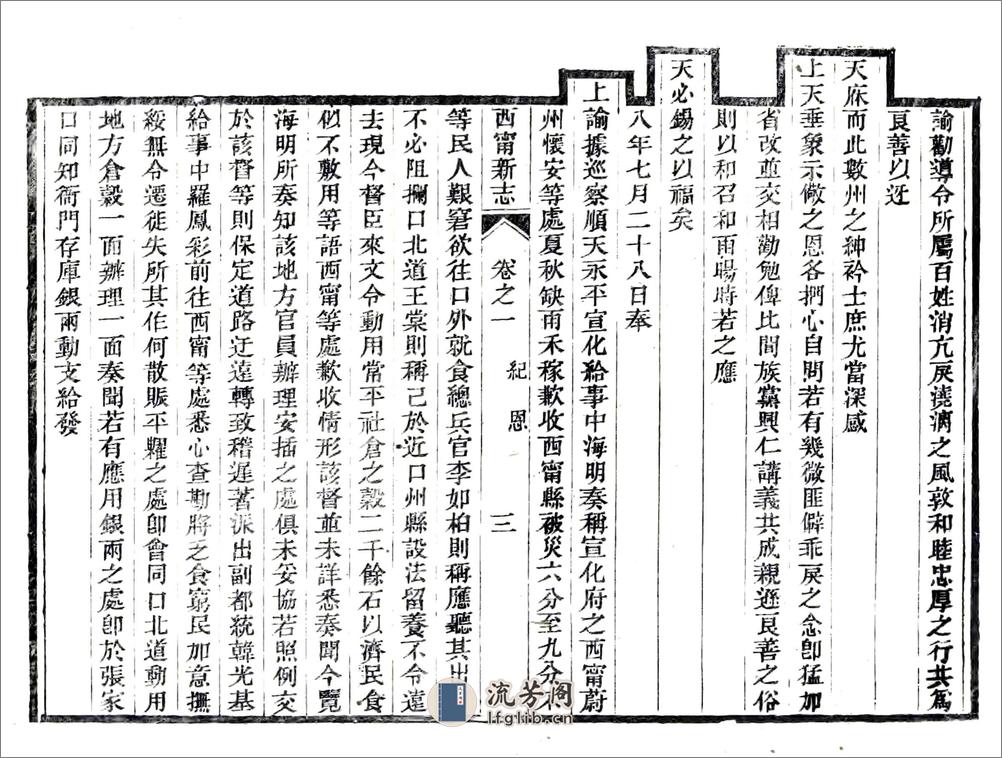 諭勸導令所屬百姓消亢戾澆漓之風敦和睦忠厚之行共爲
良善以迓
天庥而此數州之紳衿士庶尤當深感
上天垂象示儆之恩各捫心自問若有幾微匪僻乖戾之念卽猛加
省改並交相勸勉俾比閭族黨興仁講義共成親遜良善之俗
則以和召和雨暘時若之應
天必錫之以福矣
八年七月二十八日奉
上諭據巡察順天永平宣化給事中海明奏稱宣化府之西甯蔚
州懷安等處夏秋缺雨禾稼歉收西甯縣被災六分至九分不
西甯新志
卷之一 紀恩
三
等民人艱窘欲往口外就食總兵官李如柏則稱應聽其出
不必阻攔口北道王棠則稱已於近口州縣設法留養不令遠
去現今督臣來文令動用常平社倉之穀二千餘石以濟民食
似不敷用等語西甯等處歉收情形該督並未詳悉奏聞今覽
海明所奏知該地方官員辦理安插之處俱未妥協若照例交
於該督等則保定道路迂遠轉致稽遲著派出副都統韓光基
給事中羅鳳彩前往西甯等處悉心查勘將乏食窮民加意撫
綏無令遷徙失所其作何散賑平糶之處卽會同口北道動用
地方倉穀一面辦理一面奏聞若有應用銀兩之處卽於張家
口同知衙門存庫銀兩動支給發
流芳阁
lfglib.cn